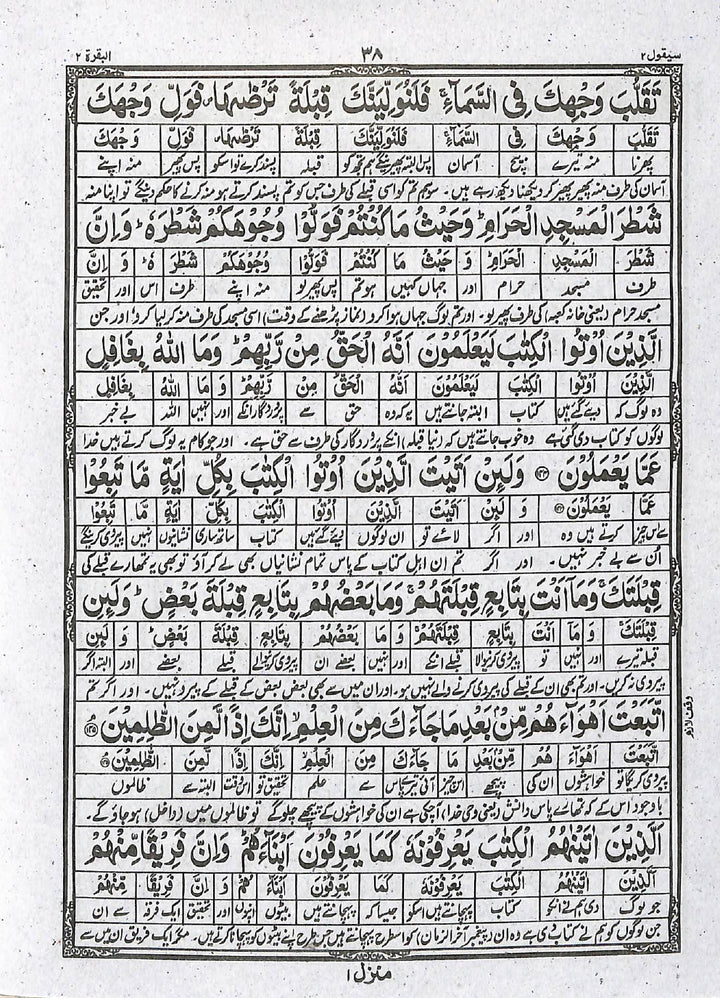 سیقول ۲
۳۸
البقرة ۲
تَقَلُّبَ وَجْهِكَ فِی السَّمَآءِ ۚ فَلَنُوَلِّیَنَّكَ قِبْلَةً تَرْضٰىهَا ۪ فَوَلِّ وَجْهَكَ
تَقَلُّبَ وَجْهِكَ فِی السَّمَآءِ فَلَنُوَلِّیَنَّكَ قِبْلَةً تَرْضٰىهَا فَوَلِّ وَجْهَكَ
پھرنا منہ تیرے بیچ آسمان پس البتہ پھیرینگے ہم تجھ کو قبلہ پسند کرے تو اسکو پس پھیر منہ اپنے
آسمان کی طرف منہ پھیر پھیر کر دیکھنا دیکھ رہے ہیں۔ سو ہم تم کو اسی قبلے کی طرف جس کو تم پسند کرتے ہو منہ کرنے کا حکم دینگے تو اپنا منہ
شَطْرَ الْمَسْجِدِ الْحَرَامِ ؕ وَحَیْثُ مَا كُنْتُمْ فَوَلُّوْا وُجُوْهَكُمْ شَطْرَهٗ ؕ وَاِنَّ
شَطْرَ الْمَسْجِدِ الْحَرَامِ وَ حَیْثُ مَا كُنْتُمْ فَوَلُّوْا وُجُوْهَكُمْ شَطْرَ هٗ وَ اِنَّ
طرف مسجد حرام اور جہاں کہیں ہو تم پس پھیر لو منہ اپنے طرف اس اور تحقیق
مسجد حرام (یعنی خانہ کعبہ) کی طرف پھیر لو۔ اور تم لوگ جہاں ہوا کرو (نماز پڑھنے کے وقت) اسی مسجد کی طرف منہ کر لیا کرو اور جن
الَّذِیْنَ اُوْتُوا الْكِتٰبَ لَیَعْلَمُوْنَ اَنَّهُ الْحَقُّ مِنْ رَّبِّهِمْ ؕ وَمَا اللّٰهُ بِغَافِلٍ
الَّذِیْنَ اُوْتُوا الْكِتٰبَ لَیَعْلَمُوْنَ اَنَّهُ الْحَقُّ مِنْ رَّبِّهِمْ وَ مَا اللّٰهُ بِغَافِلٍ
وہ لوگ کہ دیے گئے ہیں کتاب البتہ جانتے ہیں یہ کہ وہ حق سے پروردگار انکے اور نہیں اللہ بے خبر
لوگوں کو کتاب دی گئی ہے وہ خوب جانتے ہیں کہ (نیا قبلہ) انکے پروردگار کی طرف سے حق ہے۔ اور جو کام یہ لوگ کرتے ہیں خدا
عَمَّا یَعْمَلُوْنَ ۱۴۴ وَلَىِٕنْ اَتَیْتَ الَّذِیْنَ اُوْتُوا الْكِتٰبَ بِكُلِّ اٰیَةٍ مَّا تَبِعُوْا
عَمَّا یَعْمَلُوْنَ وَ لَىِٕنْ اَتَیْتَ الَّذِیْنَ اُوْتُوا الْكِتٰبَ بِكُلِّ اٰیَةٍ مَّا تَبِعُوْا
سے اس چیز کرتے ہیں وہ اور اگر لائے تو ان لوگوں دیے گئے ہیں کتاب ساتھ ساری نشانیوں نہیں پیروی کرینگے
اُن سے بے خبر نہیں۔ اور اگر تم ان اہل کتاب کے پاس تمام نشانیاں بھی لے کر آؤ تو بھی یہ تمھارے قبلے کی
قِبْلَتَكَ ۚ وَمَاۤ اَنْتَ بِتَابِعٍ قِبْلَتَهُمْ ۚ وَمَا بَعْضُهُمْ بِتَابِعٍ قِبْلَةَ بَعْضٍ ؕ وَلَىِٕنِ
قِبْلَتَكَ وَ مَاۤ اَنْتَ بِتَابِعٍ قِبْلَتَهُمْ وَ مَا بَعْضُهُمْ بِتَابِعٍ قِبْلَةَ بَعْضٍ وَ لَىِٕنِ
قبلہ تیرے اور نہیں تو پیروی کرنیوالا قبلے انکے اور نہیں بعضے ان پیروی کرنیوالے قبلے بعضے اور البتہ اگر
پیروی نہ کریں۔ اور تم بھی ان کے قبلے کی پیروی کرنے والے نہیں ہو۔ اور ان میں سے بھی بعض بعض کے قبلے کے پیرو نہیں۔ اور اگر تم
اتَّبَعْتَ اَهْوَآءَهُمْ مِّنْۢ بَعْدِ مَا جَآءَكَ مِنَ الْعِلْمِ ۙ اِنَّكَ اِذًا لَّمِنَ الظّٰلِمِیْنَ ۱۴۵
اتَّبَعْتَ اَهْوَآءَ هُمْ مِّنْۢ بَعْدِ مَا جَآءَكَ مِنَ الْعِلْمِ اِنَّكَ اِذًا لَّمِنَ الظّٰلِمِیْنَ
پیروی کریگا تو خواہشوں ان کی پیچھے اس چیز آئی تیرے پاس سے علم تحقیق تو اس وقت البتہ سے ظالموں
باوجود اس کے کہ تمھارے پاس دانش (یعنی وحی خدا) آ چکی ہے ان کی خواہشوں کے پیچھے چلو گے تو ظالموں میں (داخل) ہو جاؤ گے۔
اَلَّذِیْنَ اٰتَیْنٰهُمُ الْكِتٰبَ یَعْرِفُوْنَهٗ كَمَا یَعْرِفُوْنَ اَبْنَآءَهُمْ ؕ وَاِنَّ فَرِیْقًا مِّنْهُمْ
اَلَّذِیْنَ اٰتَیْنٰهُمُ الْكِتٰبَ یَعْرِفُوْنَهٗ كَمَا یَعْرِفُوْنَ اَبْنَآءَ هُمْ وَ اِنَّ فَرِیْقًا مِّنْهُمْ
جو لوگ دی ہم نے انکو کتاب پہچانتے ہیں اسکو جیسا کہ پہچانتے ہیں بیٹوں اپنوں اور تحقیق ایک فرقہ سے ان
جن لوگوں کو ہم نے کتاب دی ہے وہ ان (پیغمبر آخر الزمان) کو اسطرح پہچانتے ہیں جس طرح اپنے بیٹوں کو پہچانا کرتے ہیں۔ مگر ایک فریق ان میں سے
منزل ۱
وقف لازم